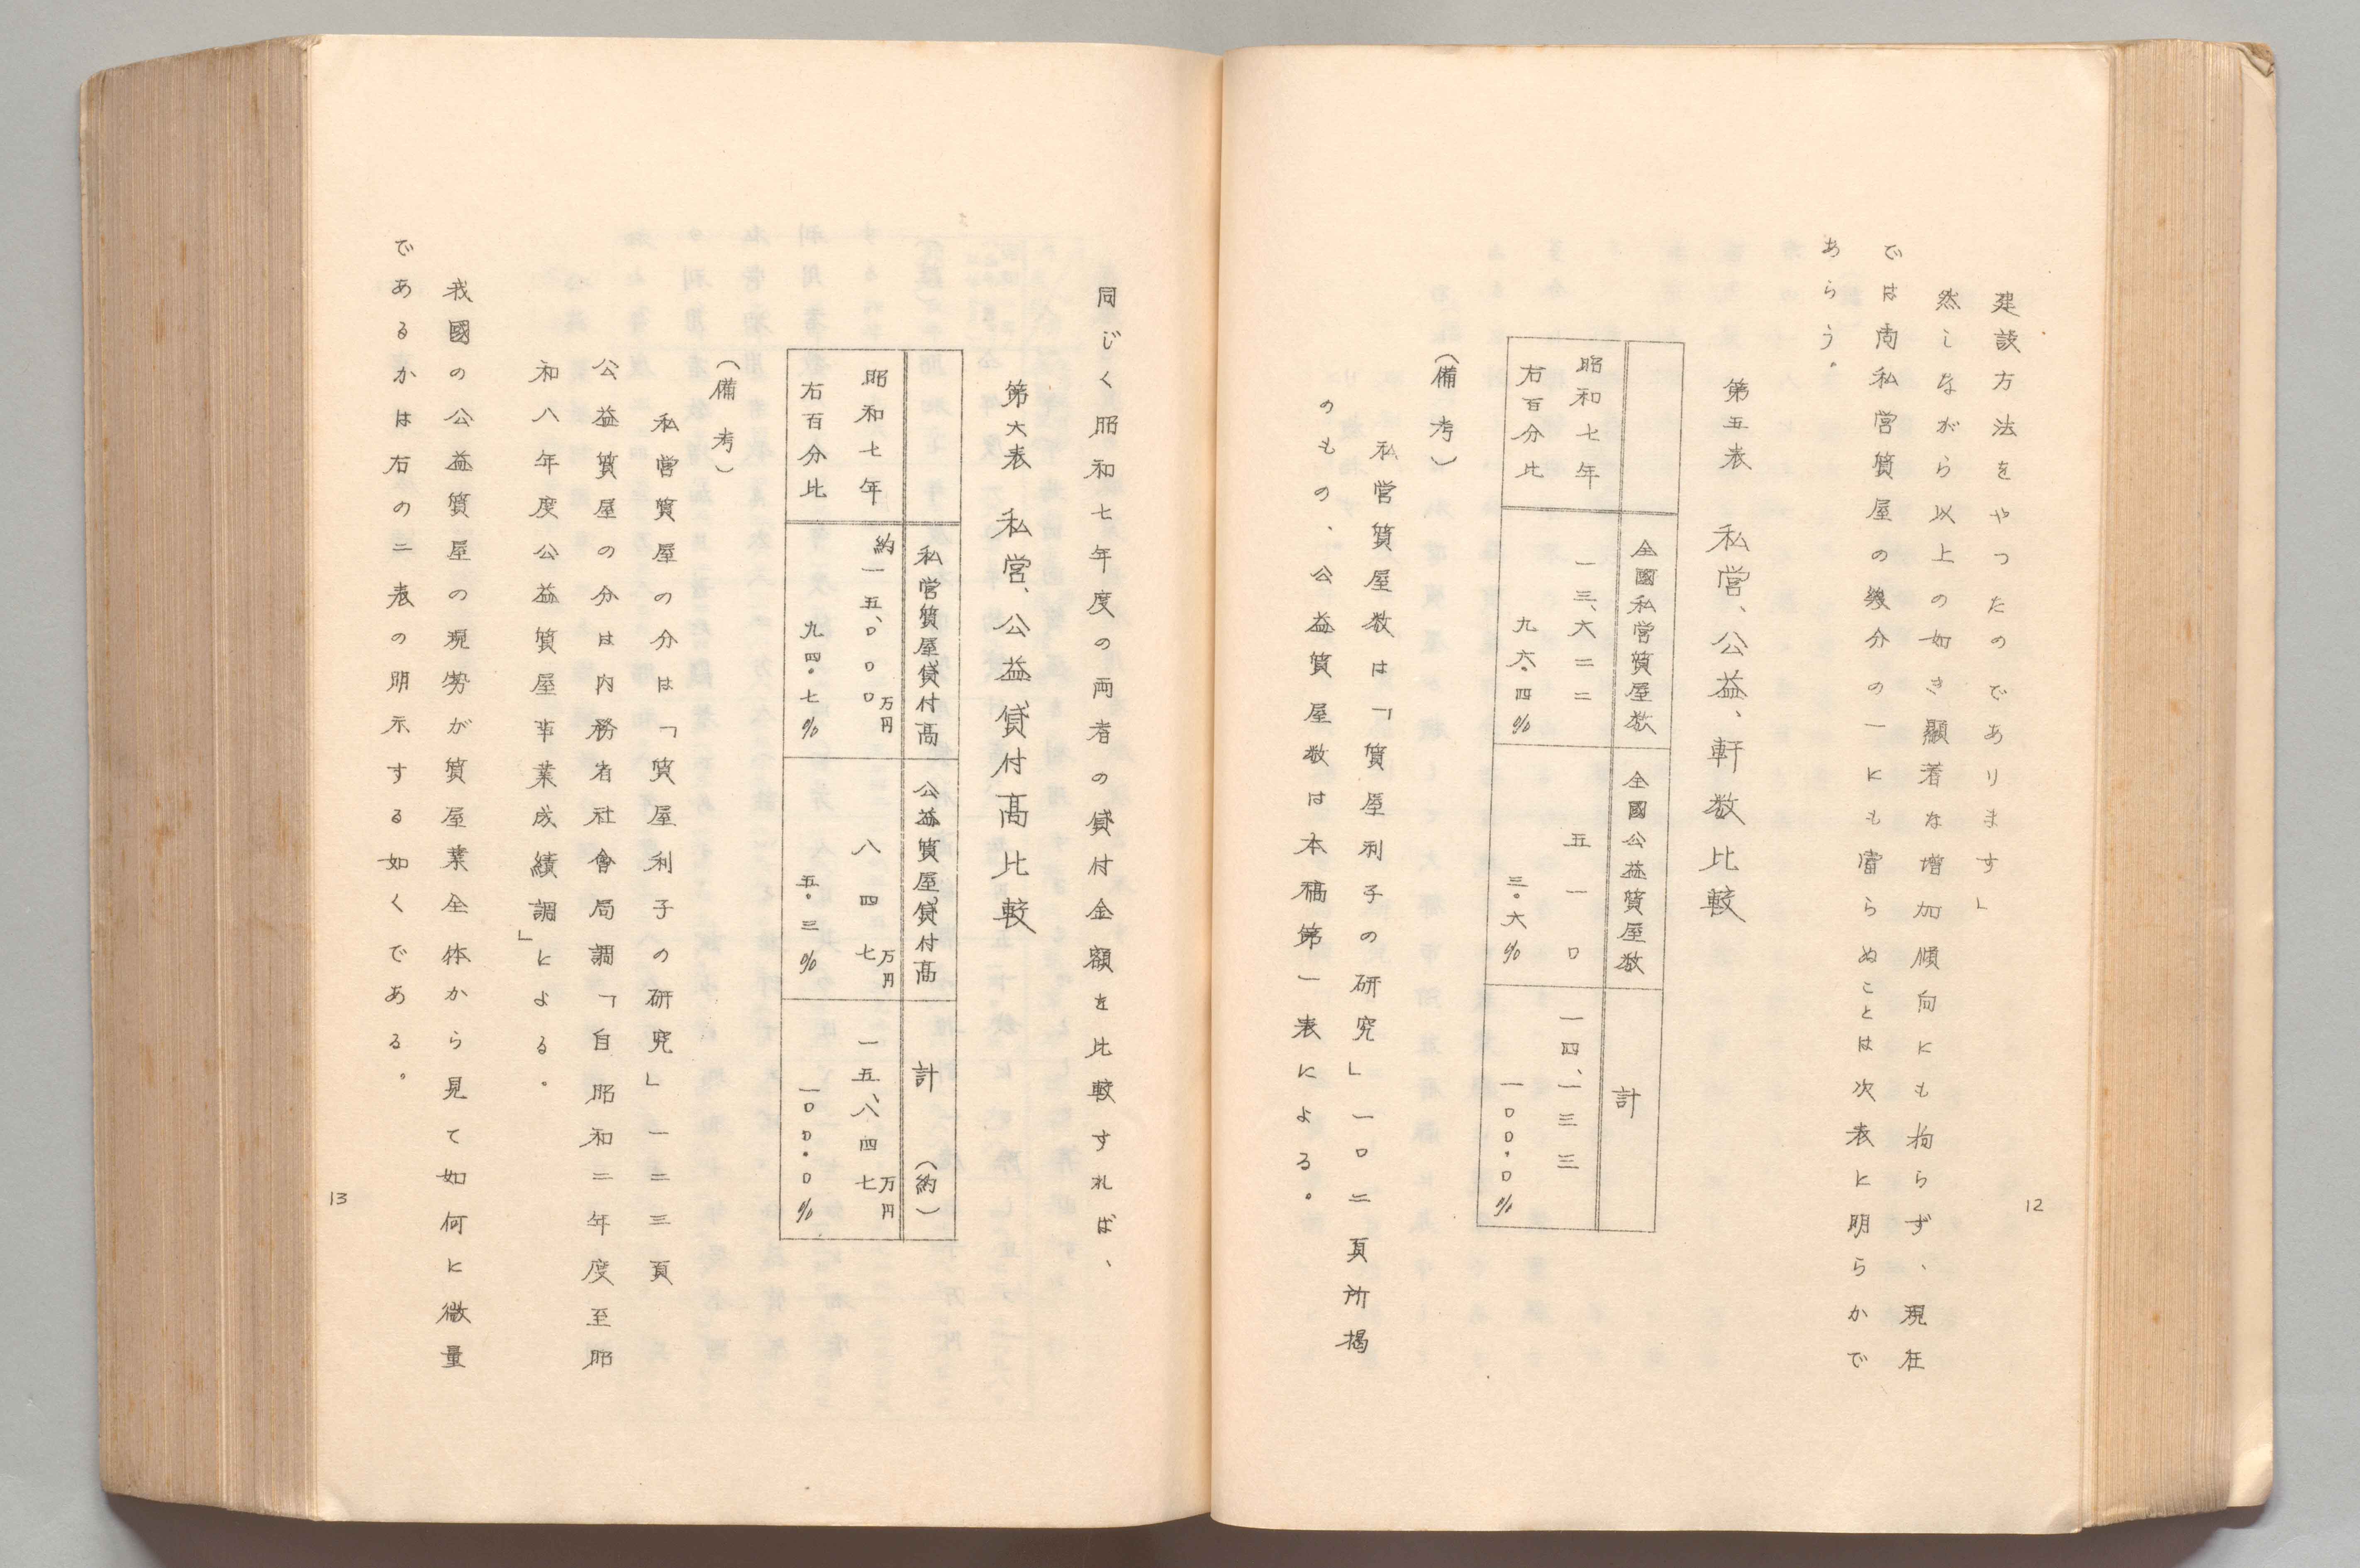 建設方法をやつたのであります」
然しながら以上の如き顯著な増加傾向にも拘らず、現在
では尚私営質屋の幾分の一にも當らぬことは次表に明らかで
あらう。
第五表 私営、公益、軒数比較
全國私営質屋数 全國公益質屋数 計
昭和七年 一三、六二二 五一〇 一四、一三三
右百分比 九六・四% 三・六% 一〇〇・〇%
(備考)
私営質屋数は「質屋利子の研究」一〇二頁所掲
のもの、公益質屋数は本稿第一表による。
12
同じく昭和七年度の両者の貸付金額を比較すれば、
第六表 私営、公益、貸付高比較
私営質屋貸付高 公益質屋貸付高 計 (約)
昭和七年 約一五、〇〇〇万円 八四七万円 一五、八四七万円
右百分比 九四・七% 五・三% 一〇〇・〇%
(備考)
私営質屋の分は「質屋利子の研究」一二三頁
公益質屋の分は内務省社會局調「自昭和二年度至昭
和八年度公益質屋事業成績調」による。
我國の公益質屋の現勢が質屋業全体から見て如何に微量
であるかは右の二表の明示する如くである。
13